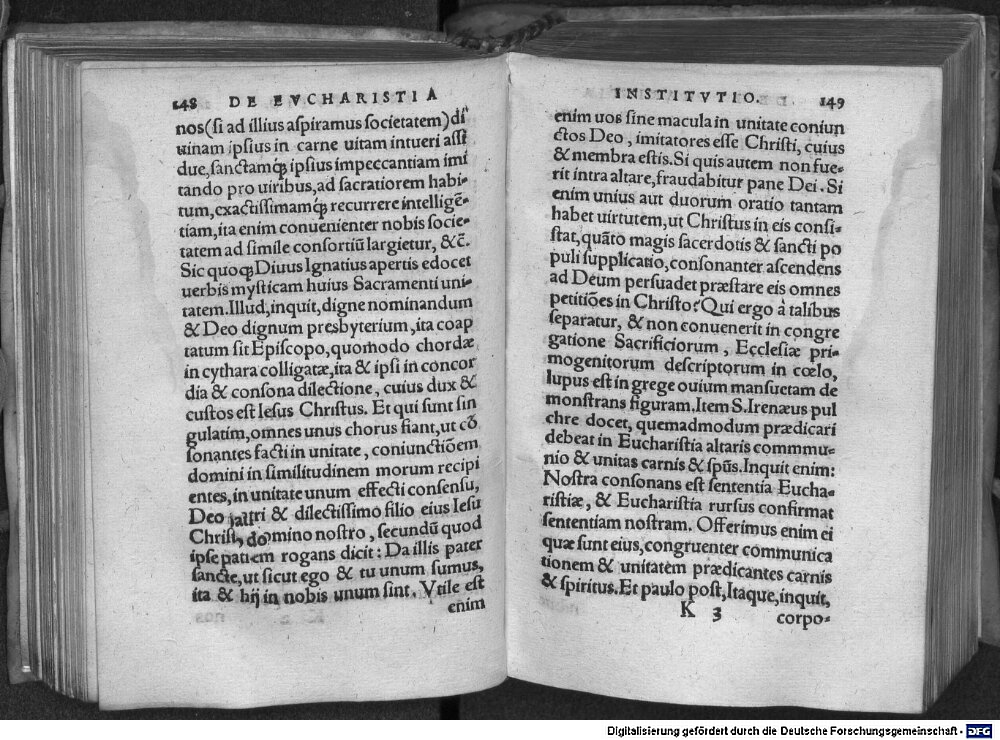 148 DE EVCHARISTIA
nos (si ad illius aspiramus societatem) di
uinam ipsius in carne uitam intueri assi
due, sanctamq; ipsius impeccantiam imi
tando pro uiribus, ad sacratiorem habi-
tum, exactissimamq; recurrere intelligē-
tiam, ita enim conuenienter nobis socie-
tatem ad simile consortiū largietur, &c̄.
Sic quoq; Diuus Ignatius apertis edocet
uerbis mysticam huius Sacramenti uni-
tatem. Illud, inquit, digne nominandum
& Deo dignum presbyterium, ita coap
tatum sit Episcopo, quomodo chordæ
in cythara colligatæ, ita & ipsi in concor
dia & consona dilectione, cuius dux &
custos est Iesus Christus. Et qui sunt sin
gulatim, omnes unus chorus fiant, ut cō
sonantes facti in unitate, coniunctiōem
domini in similitudinem morum recipi
entes, in unitate unum effecti consensu,
Deo patri & dilectissimo filio eius Iesu
Christo domino nostro, secundū quod
ipse patrem rogans dicit: Da illis pater
sancte, ut sicut ego & tu unum sumus,
ita & hij in nobis unum sint. Vtile est
enim
INSTITVTIO. 149
enim uos sine macula in unitate coniun
ctos Deo, imitatores esse Christi, cuius
& membra estis. Si quis autem non fue-
rit intra altare, fraudabitur pane Dei. Si
enim unius aut duorum oratio tantam
habet uirtutem, ut Christus in eis consi-
stat, quāto magis sacerdotis & sancti po
puli supplicatio, consonanter ascendens
ad Deum persuadet præstare eis omnes
petitiōes in Christo? Qui ergo à talibus
separatur, & non conuenerit in congre
gatione Sacrificiorum, Ecclesiæ pri-
mogenitorum descriptorum in cœlo,
lupus est in grege ouium mansuetam de
monstrans figuram. Item S. Irenæus pul
chre docet, quemadmodum prædicari
debeat in Eucharistia altaris commmu-
nio & unitas carnis & spūs. Inquit enim:
Nostra consonans est sententia Eucha-
ristiæ, & Eucharistia rursus confirmat
sententiam nostram. Offerimus enim ei
quæ sunt eius, congruenter communica
tionem & unitatem prædicantes carnis
& spiritus. Et paulo post, Itaque, inquit,
K 3 corpo-
Digitalisierung gefördert durch die Deutsche Forschungsgemeinschaft - DFG